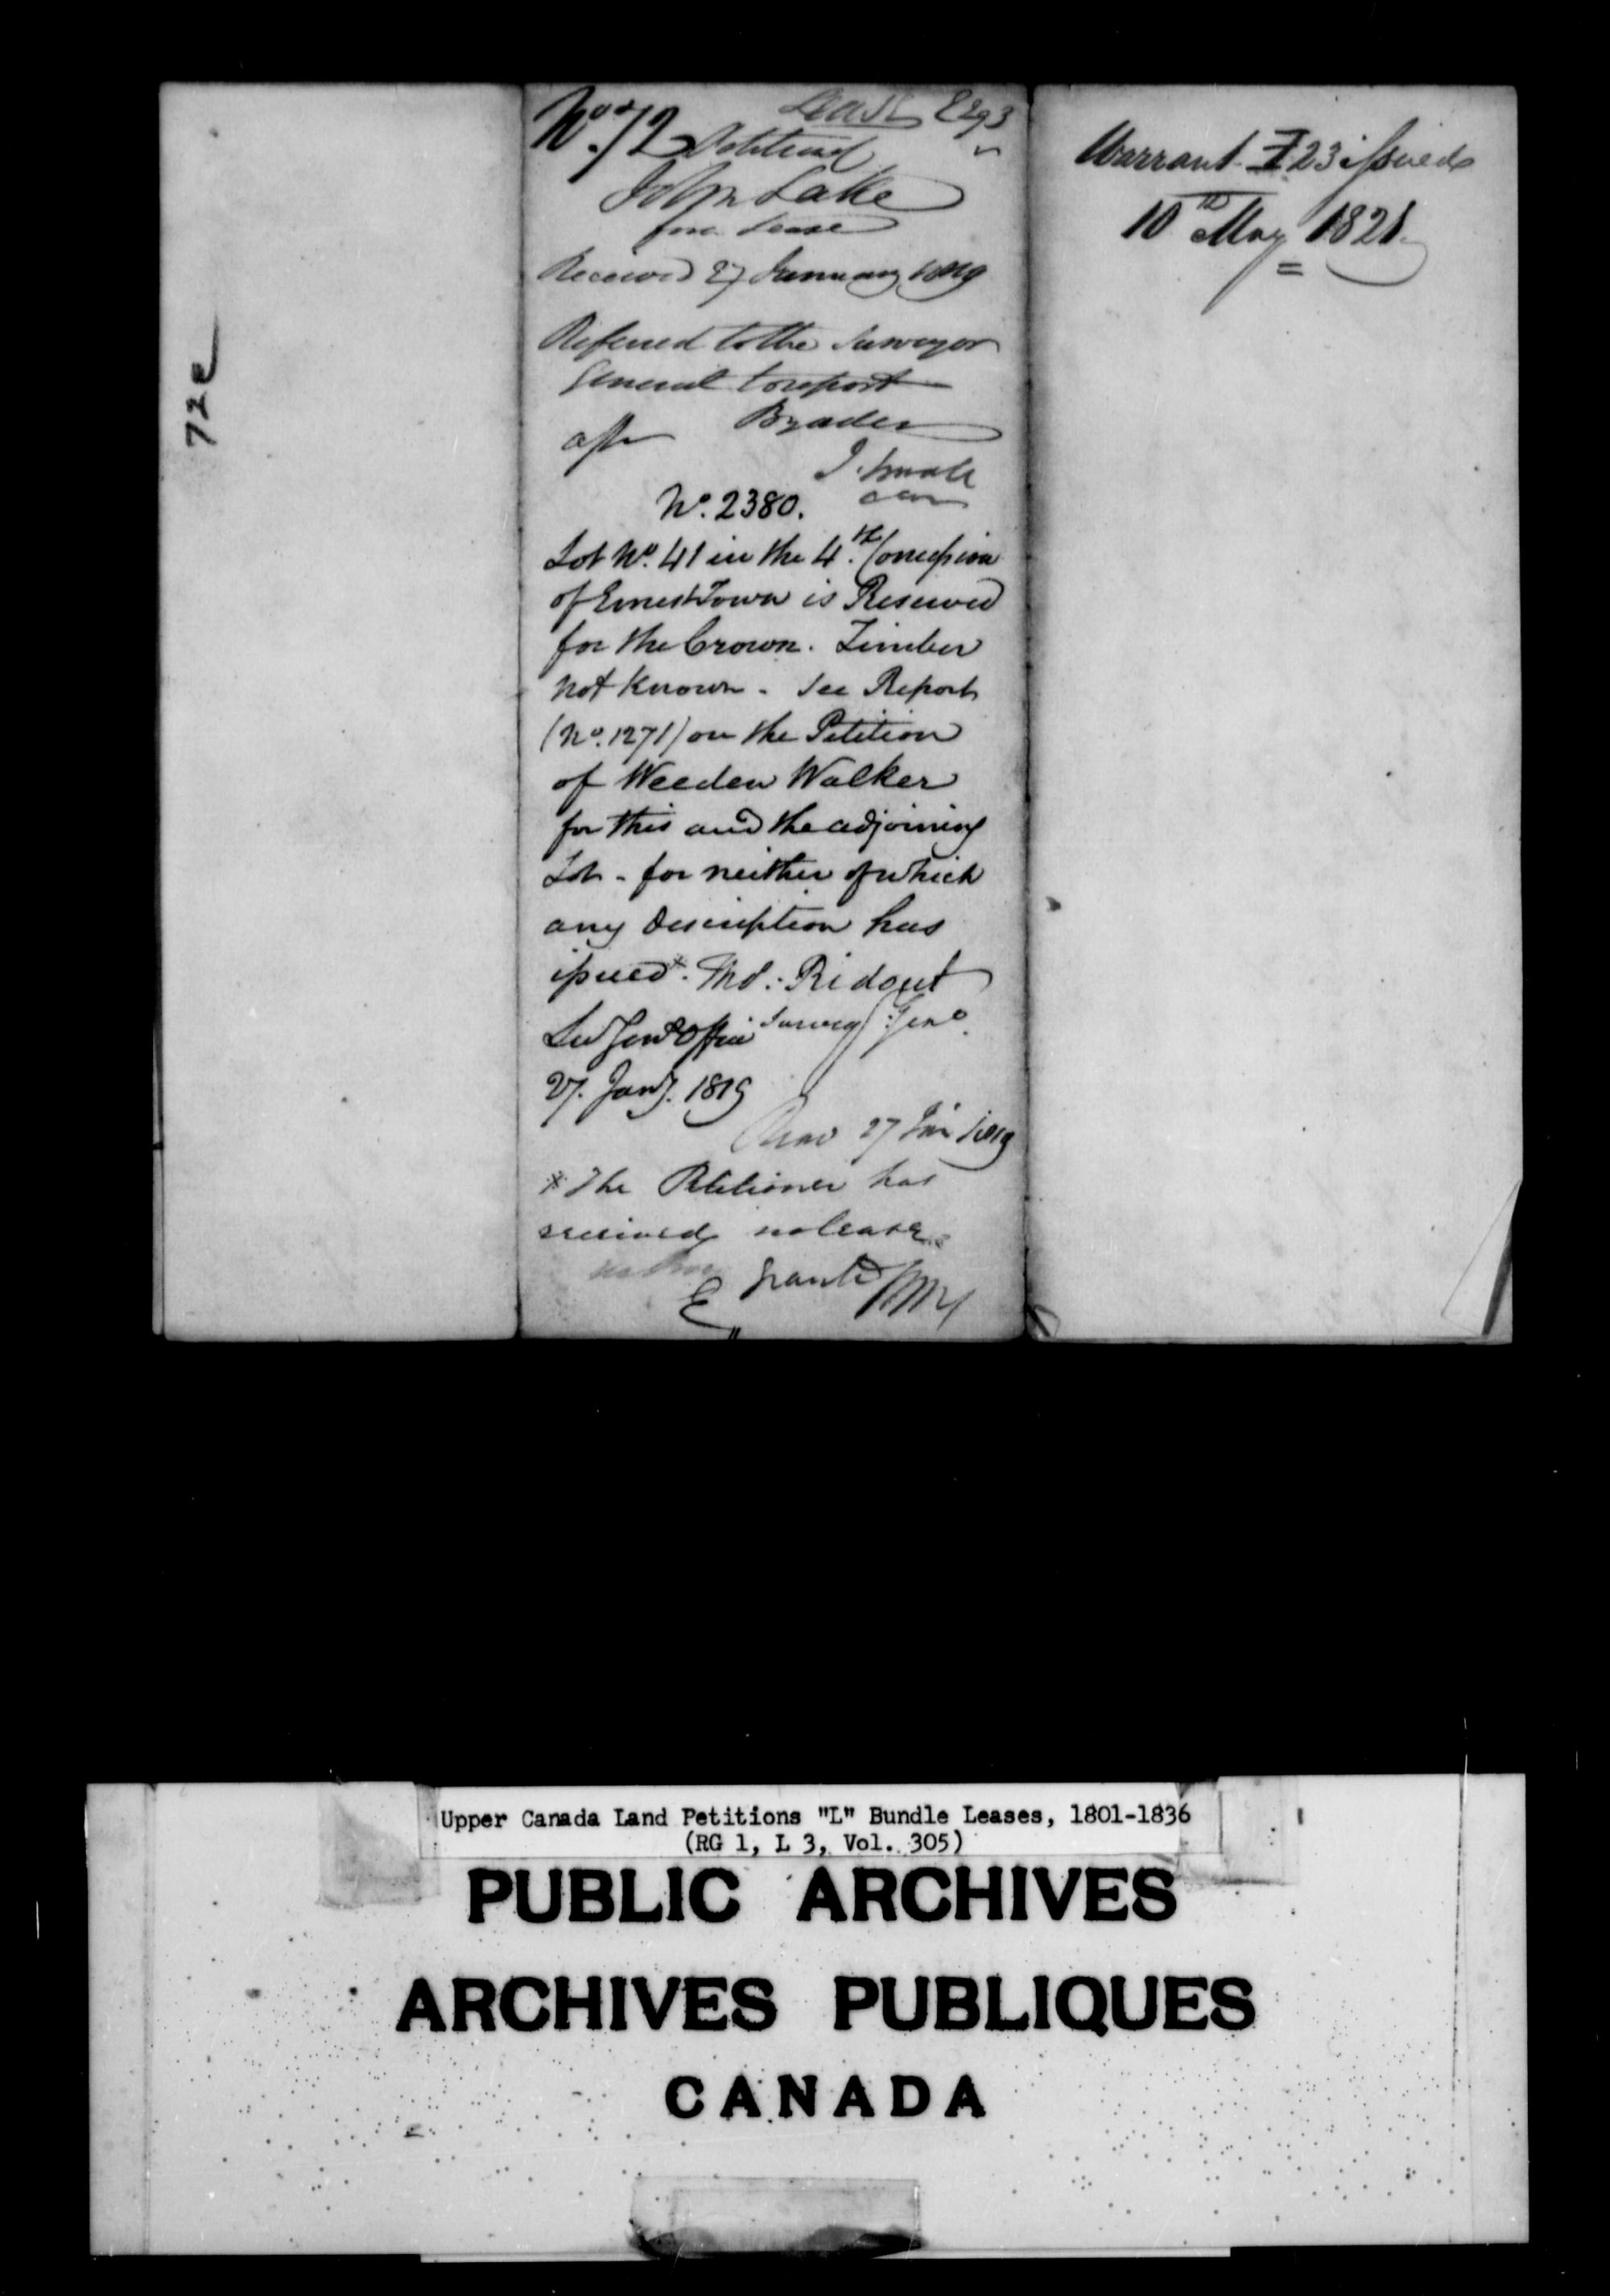 72e
Lease
No. 72 Petition
John Lake
for a Lease
Received 27 January 1819
Referred to the Surveyor
General to report
By order
J. Small
No. 2380.
Lot No. 41 in the 4.th Concession
of ErnestTown is Reserved
for the Crown. Timber
not known - See Report
(No. 1271) on the Petition
of Weeden Walker
for this and the adjoining
Lot - for neither of which
any Description has
issued*. Tho.: Ridout
Surveyr. Genl.
Sur Genls Office
27. Jany. 1819
27 Jan 1819
* The Petitioner has
received no lease
Granted
Warrant 723 issued
10th May 1821.
Upper Canada Land Petitions "L" Bundle Leases, 1801-1836
(RG 1, L 3, Vol. 305)
PUBLIC ARCHIVES
ARCHIVES PUBLIQUES
CANADA